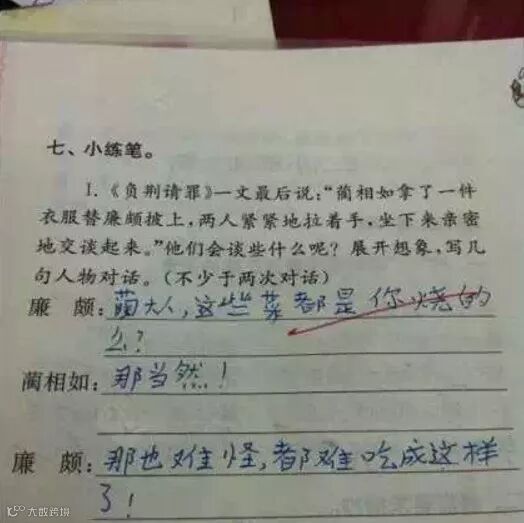 七、小练笔。
1.《负荆请罪》一文最后说：“蔺相如拿了一件
衣服替廉颇披上，两人紧紧地拉着手，坐下来亲密
地交谈起来。”他们会谈些什么呢？展开想象，写几
句人物对话。（不少于两次对话）
廉 颇：蔺大人，这些菜都是你烧的
么？
蔺相如：那当然！
廉 颇：那也难怪，都难吃成这样
了！
大数跨境